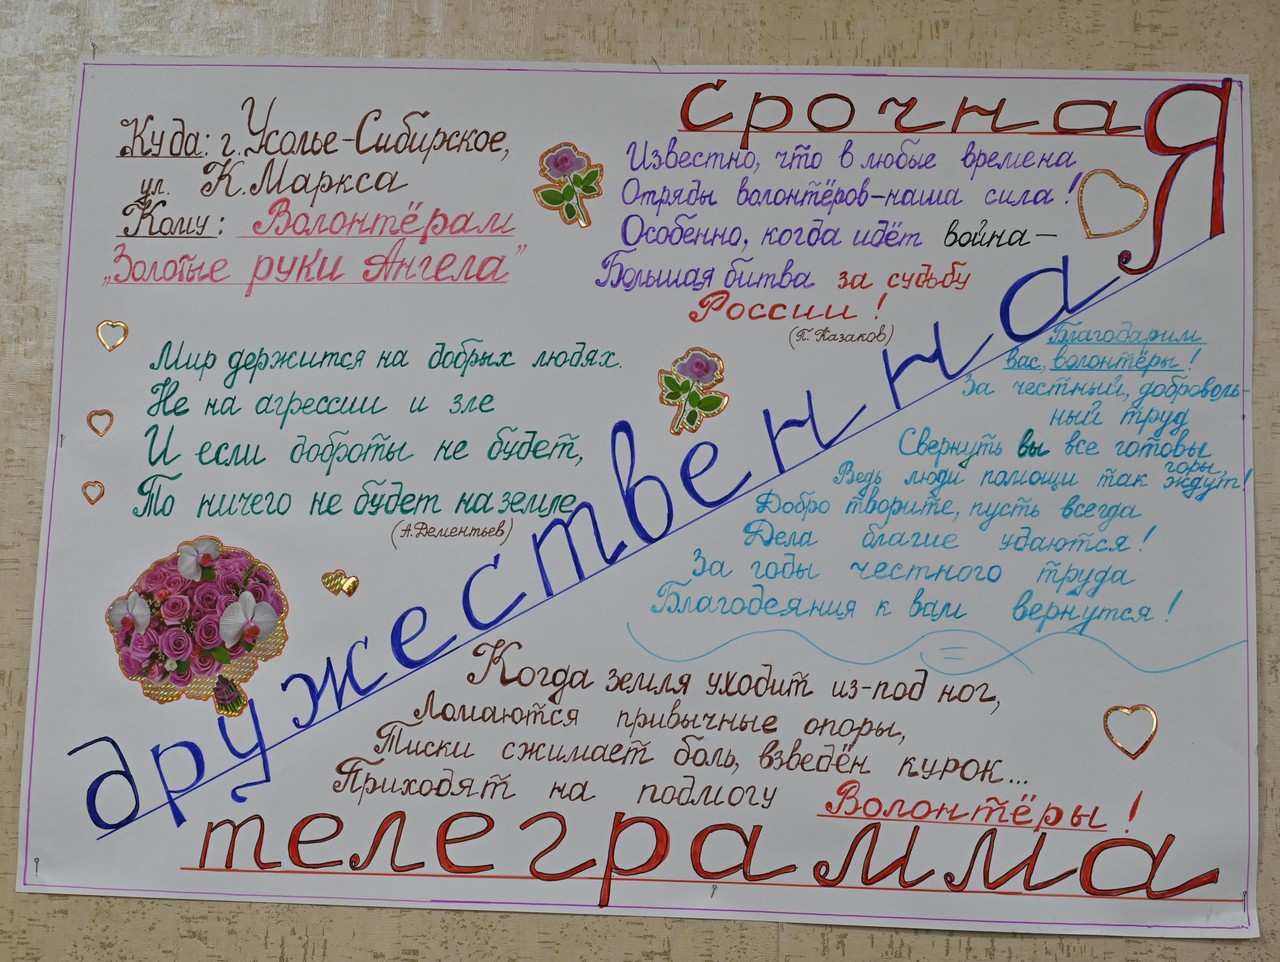 срочнаЯ
дружественная
телеграмма
Куда: г. Усолье-Сибирское,
ул. К. Маркса
Кому: Волонтёрам
„Золотые руки Ангела"
Известно, что в любые времена
Отряды волонтёров-наша сила!
Особенно, когда идёт война—
Большая битва за судьбу
России!
(П. Казаков)
Мир держится на добрых людях.
Не на агрессии и зле
И если доброты не будет,
То ничего не будет на земле
(А. Дементьев)
Благодарим
вас, волонтёры!
За честный, доброволь-
ный труд
Свернуть вы все готовы
горы,
Ведь люди помощи так ждут!
Добро творите, пусть всегда
Дела благие удаются!
За годы честного труда
Благодеяния к вам вернутся!
Когда земля уходит из-под ног,
Ломаются привычные опоры,
Тиски сжимает боль, взведён курок...
Приходят на подмогу Волонтёры!